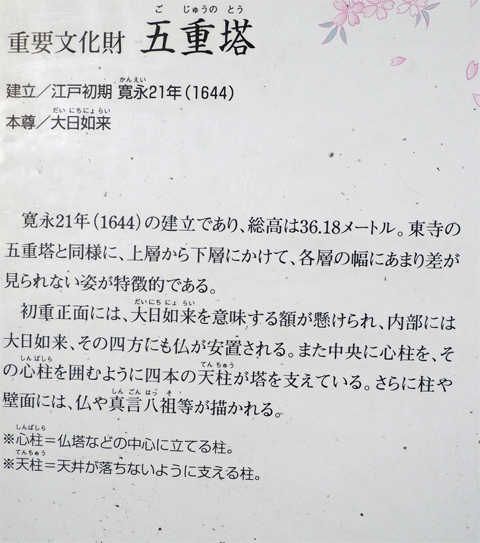 ご じゅうの とう
重要文化財 五重塔
かんえい
建立／江戸初期 寛永21年（1644）
だい にち にょ らい
本尊／大日如来
寛永21年（1644）の建立であり、総高は36.18メートル。東寺の
五重塔と同様に、上層から下層にかけて、各層の幅にあまり差が
見られない姿が特徴的である。
だいにち にょ らい
初重正面には、大日如来を意味する額が懸けられ、内部には
大日如来、その四方にも仏が安置される。また中央に心柱を、そ
しんばしら てん ちゅう
の心柱を囲むように四本の天柱が塔を支えている。さらに柱や
しん ごん はっ そ
壁面には、仏や真言八祖等が描かれる。
しんばしら
※心柱＝仏塔などの中心に立てる柱。
てんちゅう
※天柱＝天井が落ちないように支える柱。